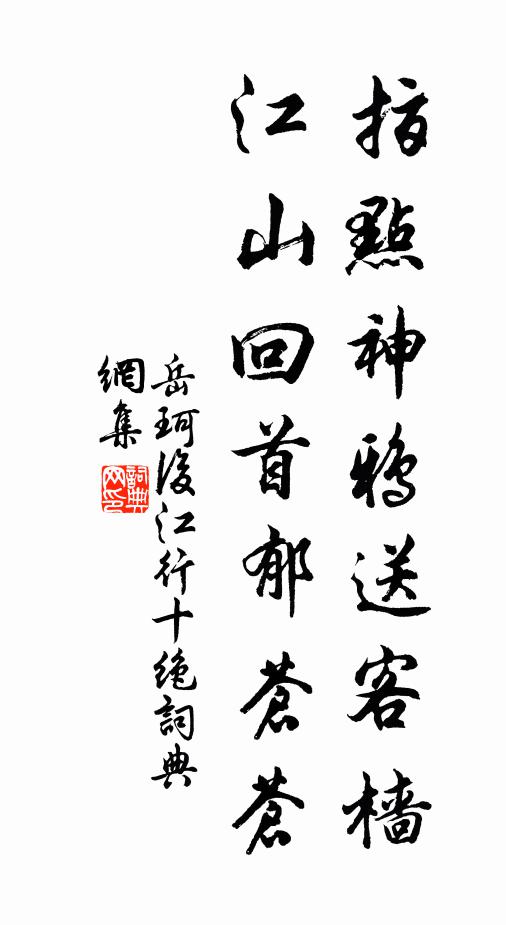 指點神鴉送客檣
江山回首郁蒼蒼
岳珂後江行十绝詞典
網集
詞典網印